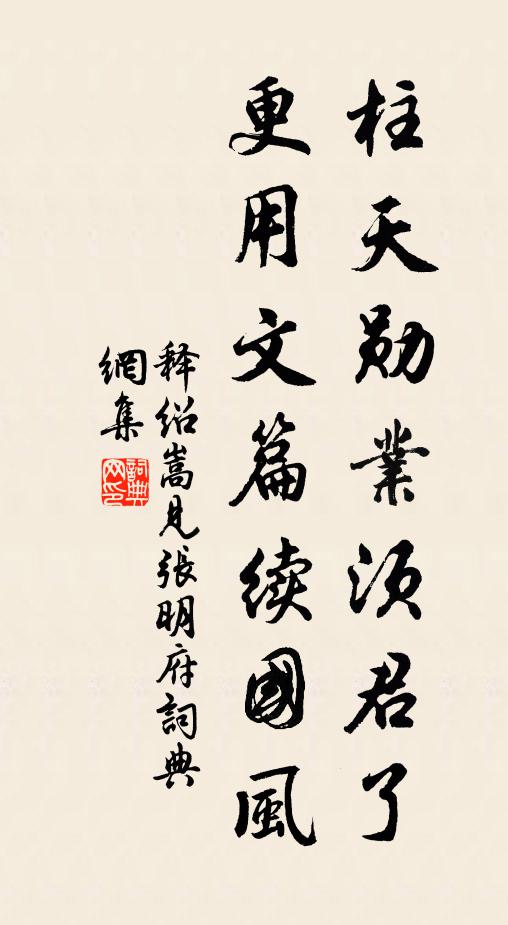 柱天勋業须君了
更用文篇续國風
释绍嵩見張明府詞典
網集
詞典网印